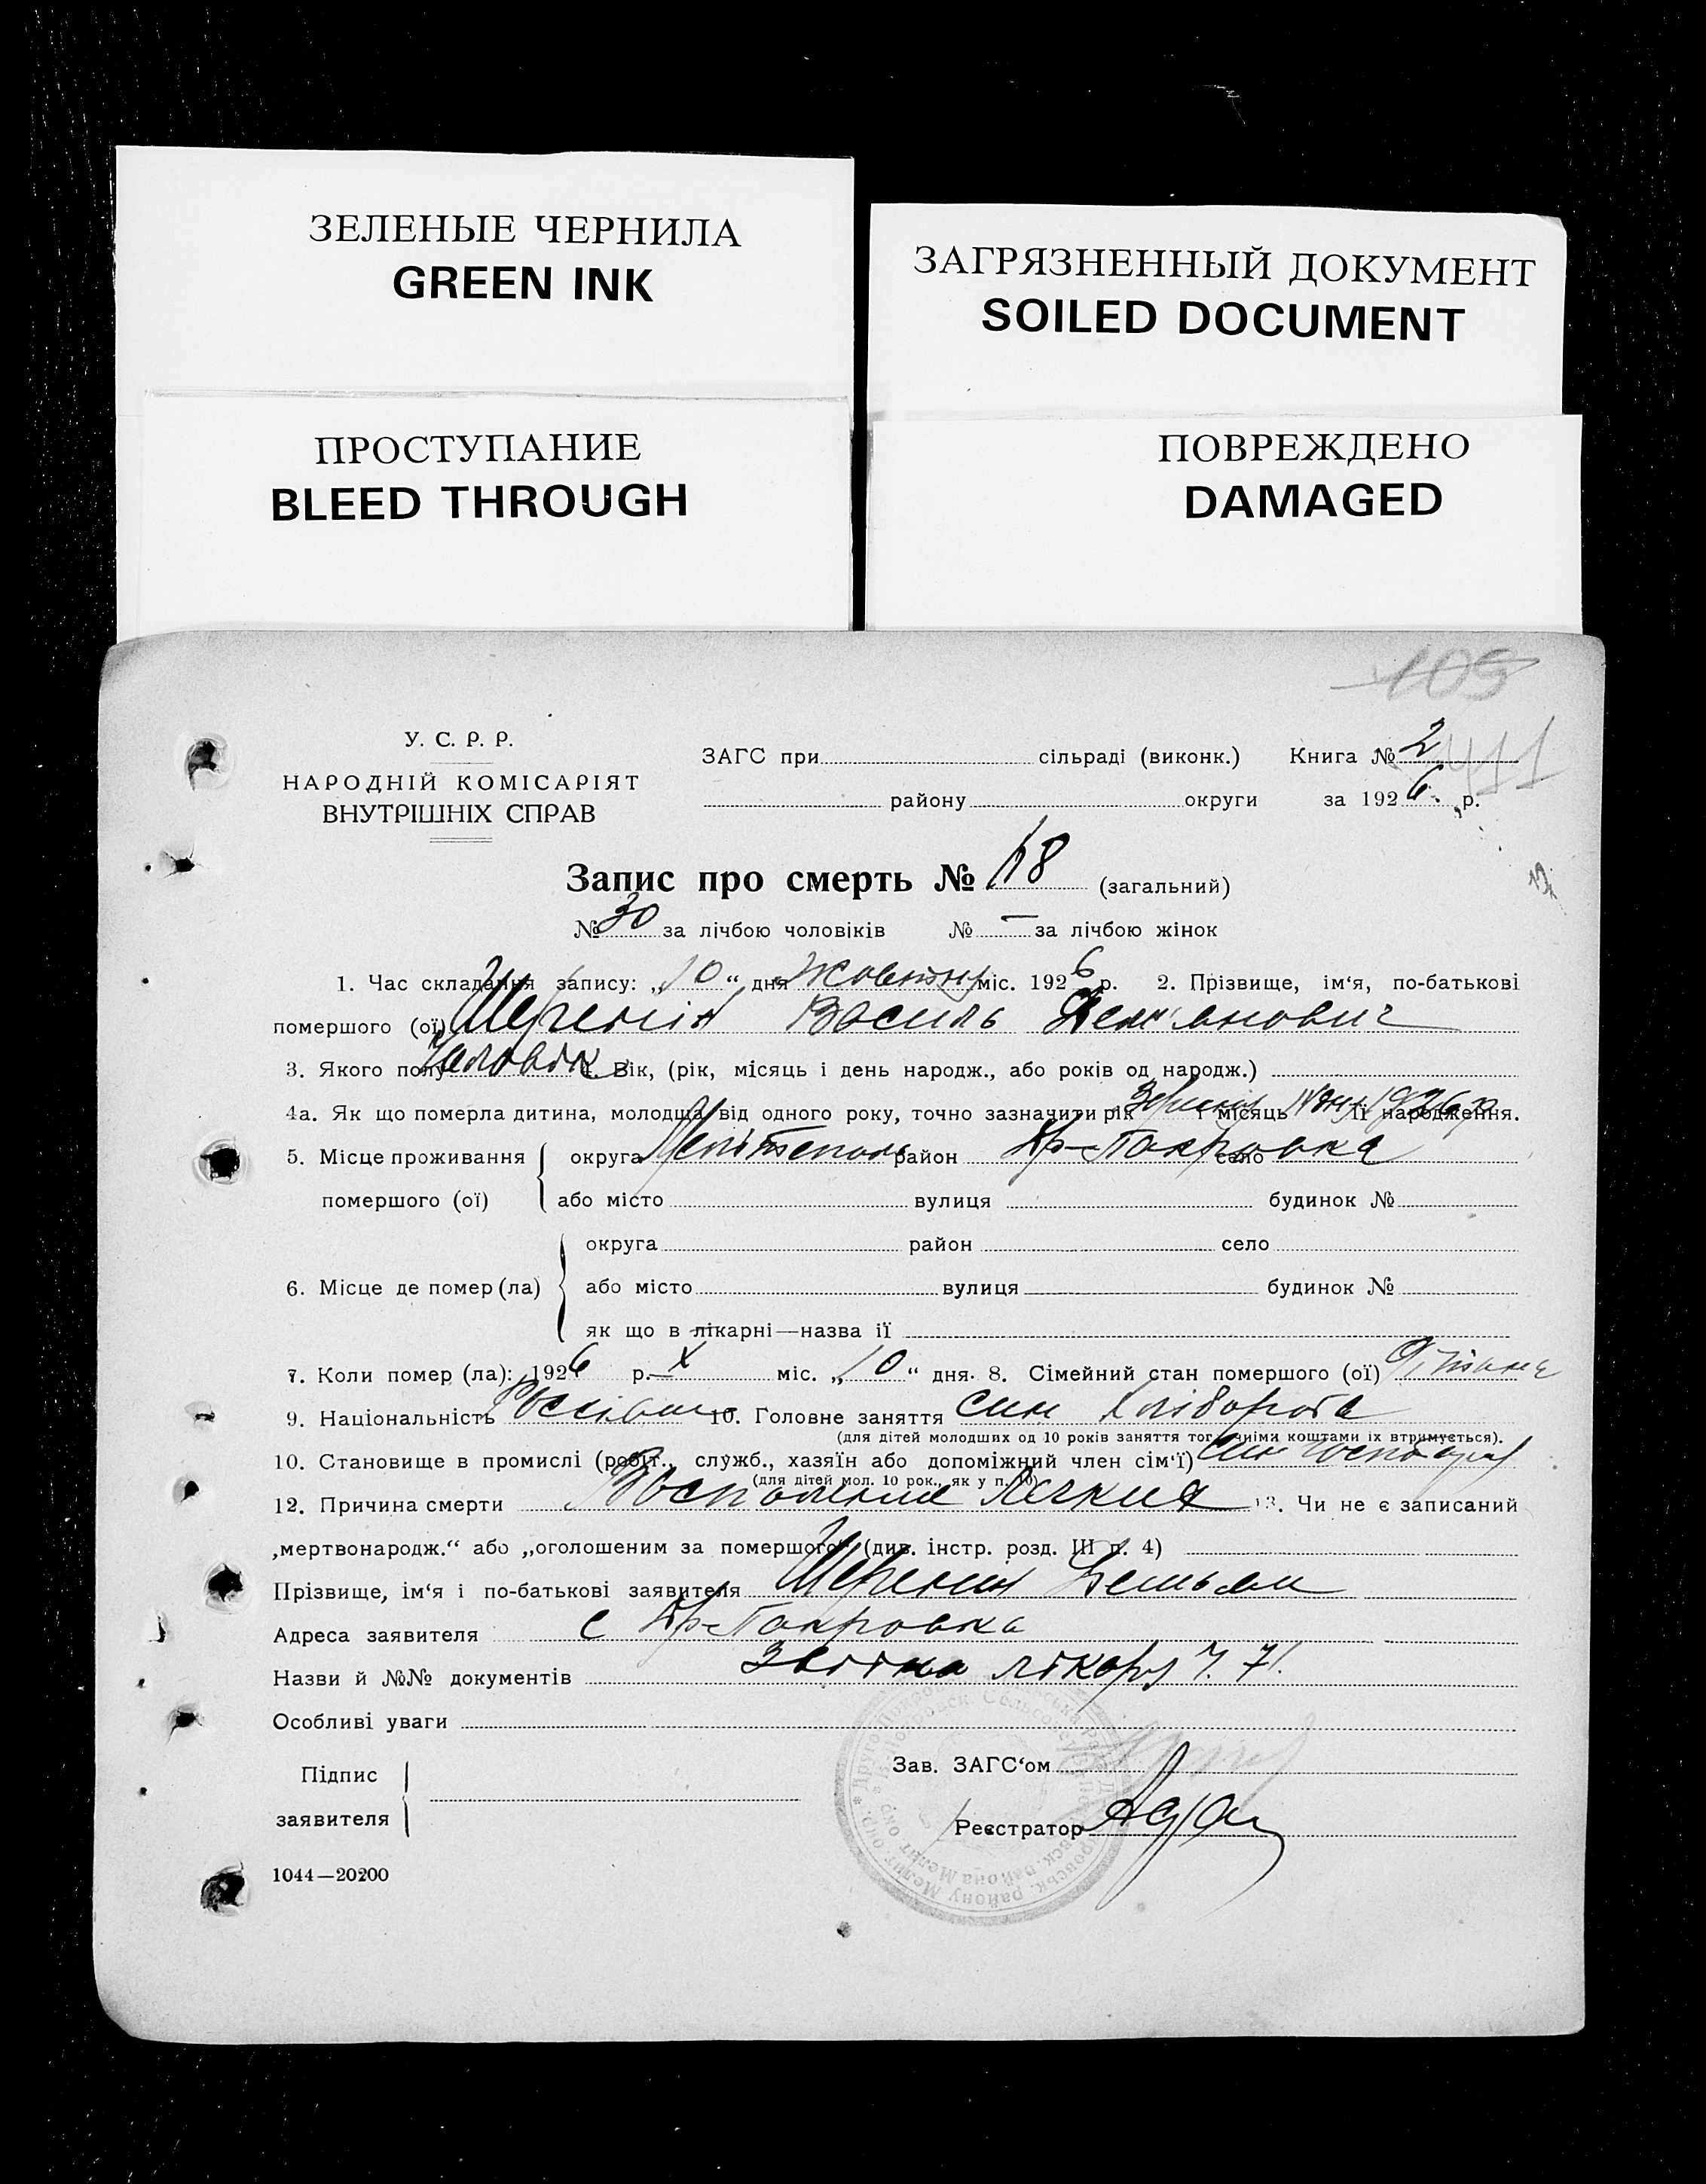 ЗЕЛЕНЫЕ ЧЕРНИЛА
GREEN INK
ЗАГРЯЗНЕННЫЙ ДОКУМЕНТ
SOILED DOCUMENT
ПРОСТУПАНИЕ
BLEED THROUGH
ПОВРЕЖДЕНО
DAMAGED
109
У. С. Р. Р.
НАРОДНІЙ КОМІСАРІЯТ
ВНУТРІШНІХ СПРАВ
ЗАГС при сільраді (виконк.) Книга № 2
411
району округи за 1926 р.
Запис про смерть № 18 (загальний)
№ 30 за лічбою чоловіків № — за лічбою жінок
1. Час складання запису: „10“ дня Жовтня міс. 1926 р. 2. Прізвище, ім‘я, по-батькові
помершого (ої) Василь Дем'янович
3. Якого полу Чоловік 4. Вік, (рік, місяць і день народж., або років од народж.)
4а. Як що померла дитина, молодша від одного року, точно зазначити рік і місяць її народження. 1926 р
5. Місце проживання округа Мелітополь район Др-Покровка село
помершого (ої) або місто вулиця будинок №
округа район село
6. Місце де помер (ла) або місто вулиця будинок №
як що в лікарні—назва ії
7. Коли помер (ла): 1926 р. X міс. „10“ дня. 8. Сімейний стан помершого (ої)
9. Національність 10. Головне заняття син хлібороба
(для дітей молодших од 10 років заняття того чиїми коштами їх втримується).
10. Становище в промислі (робіт., служб., хазяїн або допоміжний член сім‘ї) син господаря
(для дітей мол. 10 рок., як у п. 10)
12. Причина смерти Воспаление легких 13. Чи не є записаний
„мертвонародж.“ або „оголошеним за помершого“ (див. інстр. розд. III п. 4)
Прізвище, ім‘я і по-батькові заявителя Демьян
Адреса заявителя с Др-Покровка
Назви й №№ документів лікаря Ч. 71.
Особливі уваги
Підпис
заявителя
Зав. ЗАГС‘ом
Реєстратор
1044—20200